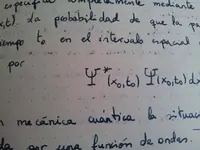 especifica completamente mediante
x,t). La probabilidad de que la pa
iempo to en el intervalo espacial
por
Ψ*(x₀,t₀) Ψ(x₀,t₀) dx
mecánica cuántica la situac
da por una función de ondas.